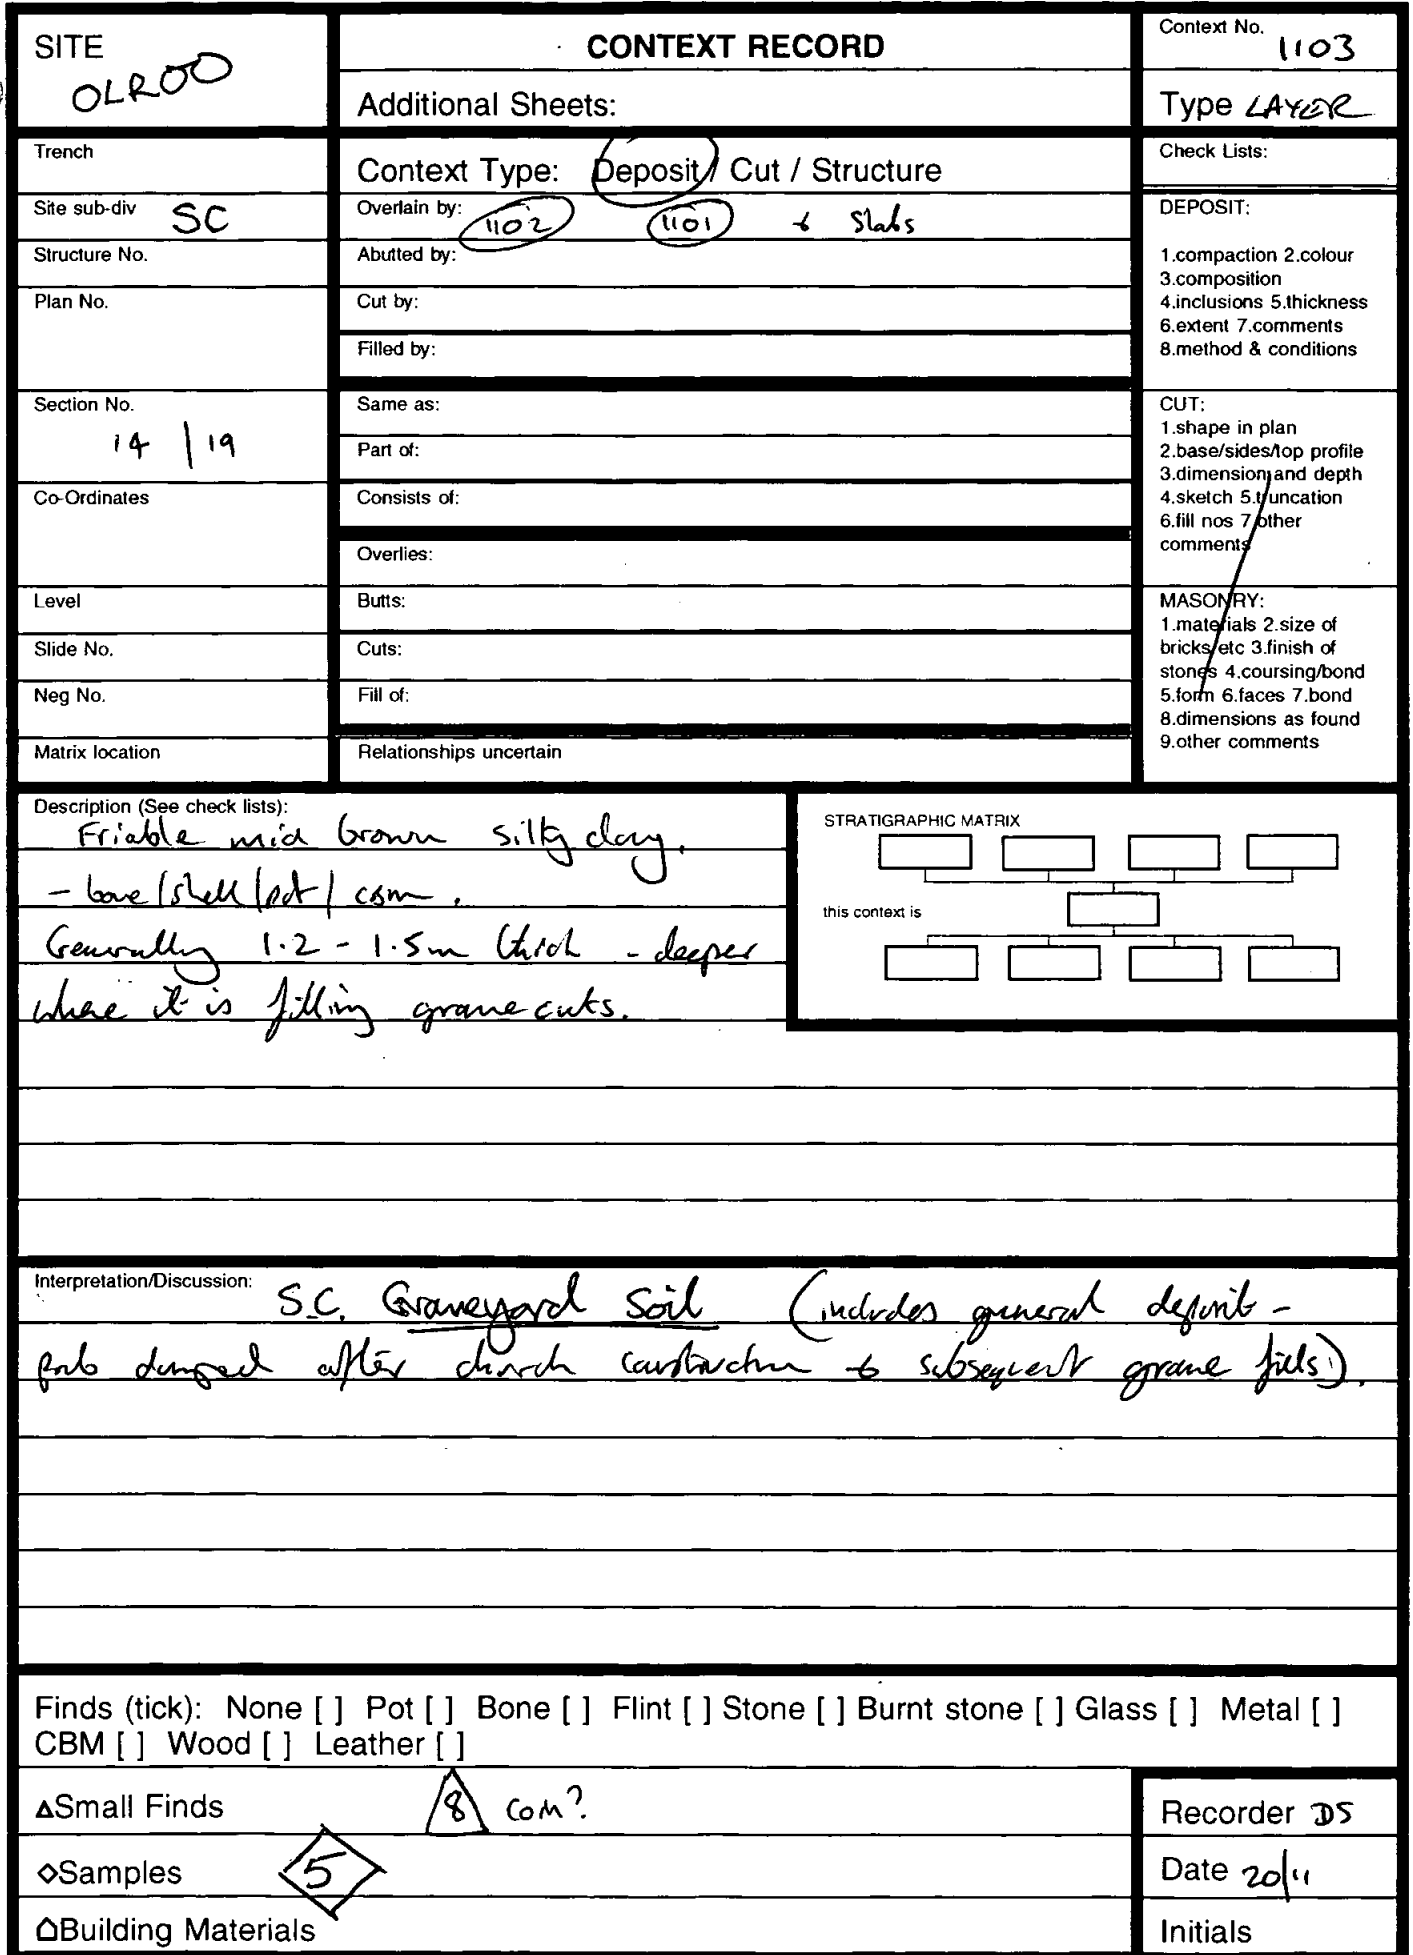 SITE
OLR00
CONTEXT RECORD
Additional Sheets:
Context No. 1103
Type LAYER
Trench
Site sub-div SC
Structure No.
Plan No.
Section No.
14 / 19
Co-Ordinates
Level
Slide No.
Neg No.
Matrix location
Context Type: Deposit / Cut / Structure
Overlain by: 1102 1101 + Slabs
Abutted by:
Cut by:
Filled by:
Same as:
Part of:
Consists of:
Overlies:
Butts:
Cuts:
Fill of:
Relationships uncertain
Check Lists:
DEPOSIT:
1.compaction 2.colour
3.composition
4.inclusions 5.thickness
6.extent 7.comments
8.method & conditions
CUT:
1.shape in plan
2.base/sides/top profile
3.dimension and depth
4.sketch 5.truncation
6.fill nos 7.other
comments
MASONRY:
1.materials 2.size of
bricks etc 3.finish of
stones 4.coursing/bond
5.form 6.faces 7.bond
8.dimensions as found
9.other comments
Description (See check lists):
Friable mid brown silty clay.
- bone / shell / pot / CBM.
Generally 1.2 - 1.5m thick - deeper
where it is filling grave cuts.
STRATIGRAPHIC MATRIX
this context is
Interpretation/Discussion: S.C. Graveyard Soil (includes general deposit -
prob dumped after church construction + subsequent grave fills).
Finds (tick): None [ ] Pot [ ] Bone [ ] Flint [ ] Stone [ ] Burnt stone [ ] Glass [ ] Metal [ ]
CBM [ ] Wood [ ] Leather [ ]
△Small Finds 8 coin?
◇Samples 5
Building Materials
Recorder DS
Date 20/11
Initials